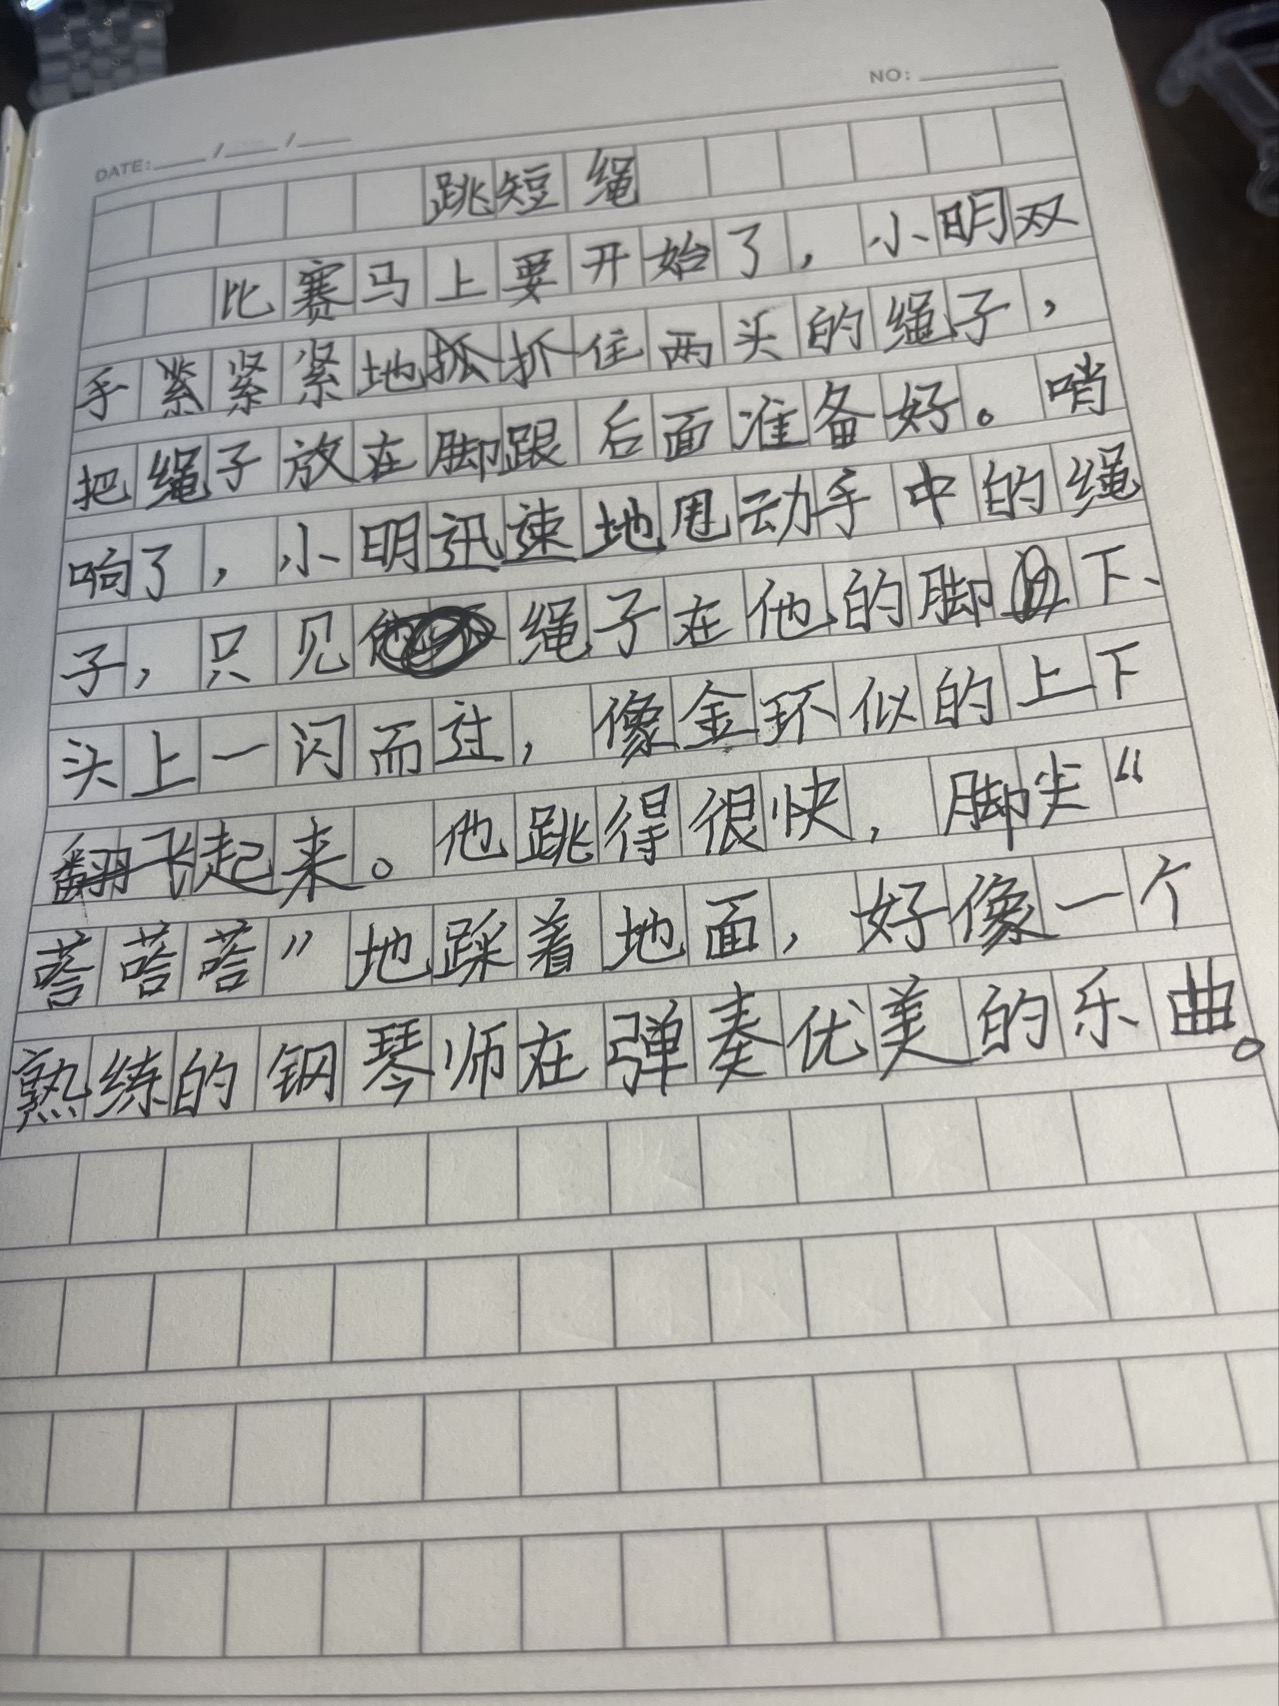 NO:
DATE: / /
跳短绳
比赛马上要开始了，小明双
手紧紧地抓住两头的绳子，
把绳子放在脚跟后面准备好。哨
响了，小明迅速地甩动手中的绳
子，只见绳子在他的脚下、
头上一闪而过，像金环似的上下
翻飞起来。他跳得很快，脚尖“
嗒嗒嗒”地踩着地面，好像一个
熟练的钢琴师在弹奏优美的乐曲。